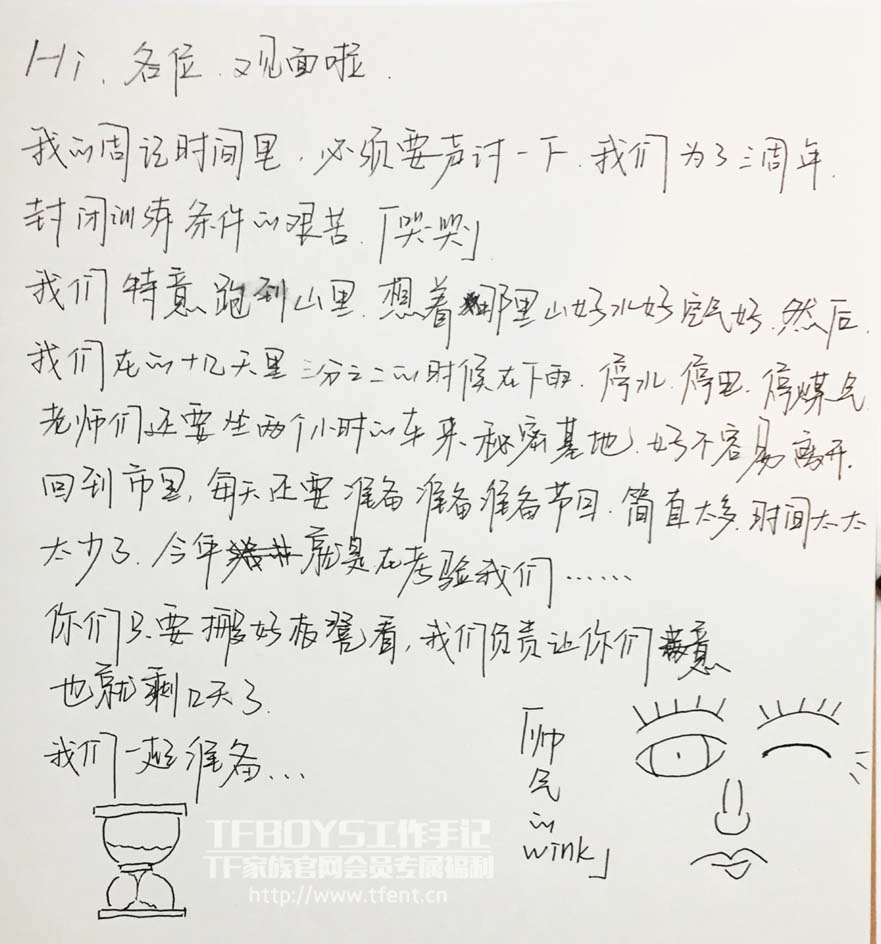 Hi、各位、又见面啦.
我的周记时间里，必须要声讨一下.我们为了三周年.
封闭训练条件的艰苦.「哭哭」
我们特意跑到山里.想着那里山好水好空气好.然后.
我们在的十几天里三分之二的时候在下雨.停水.停电.停煤气
老师们还要坐两个小时的车来.秘密基地.好不容易离开.
回到市里，每天还要准备准备准备节目.简直太多.时间太太
太少了.今年就是在考验我们……
你们只要挪好板凳看，我们负责让你们满意
也就剩几天了.
我们一起准备...
「帅
气
的
wink」
TFBOYS工作手记
TF家族官网会员专属福利
http://www.tfent.cn